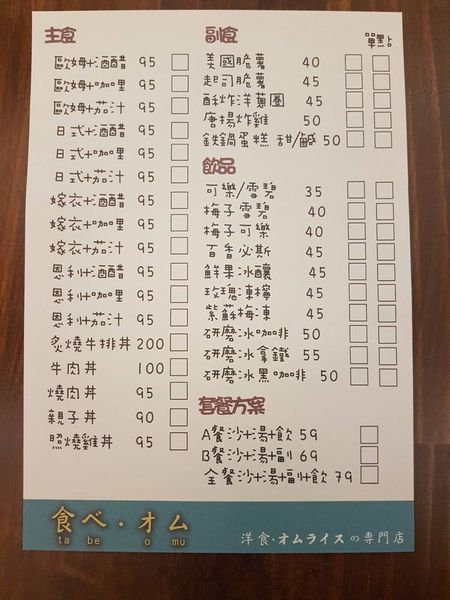 主食
歐姆+酒醋 95
歐姆+咖哩 95
歐姆+茄汁 95
日式+酒醋 95
日式+咖哩 95
日式+茄汁 95
嫁衣+酒醋 95
嫁衣+咖哩 95
嫁衣+茄汁 95
恩利+酒醋 95
恩利+咖哩 95
恩利+茄汁 95
炙燒牛排丼 200
牛肉丼 100
燒肉丼 95
親子丼 90
照燒雞丼 95
副食 單點
美國脆薯 40
起司脆薯 45
酥炸洋蔥圈 45
唐揚炸雞 50
鉄鍋蛋糕 甜/鹹 50
飲品
可樂/雪碧 35
梅子雪碧 40
梅子可樂 40
百香必斯 45
鮮果冰釀 45
玫瑰凍檸 45
紫蘇梅凍 45
研磨冰咖啡 50
研磨冰拿鐵 55
研磨冰黑咖啡 50
套餐方案
A餐沙+湯+飲 59
B餐沙+湯+副 69
全餐沙+湯+副+飲 79
食べ・オム
ta be o mu
洋食・オムライスの專門店